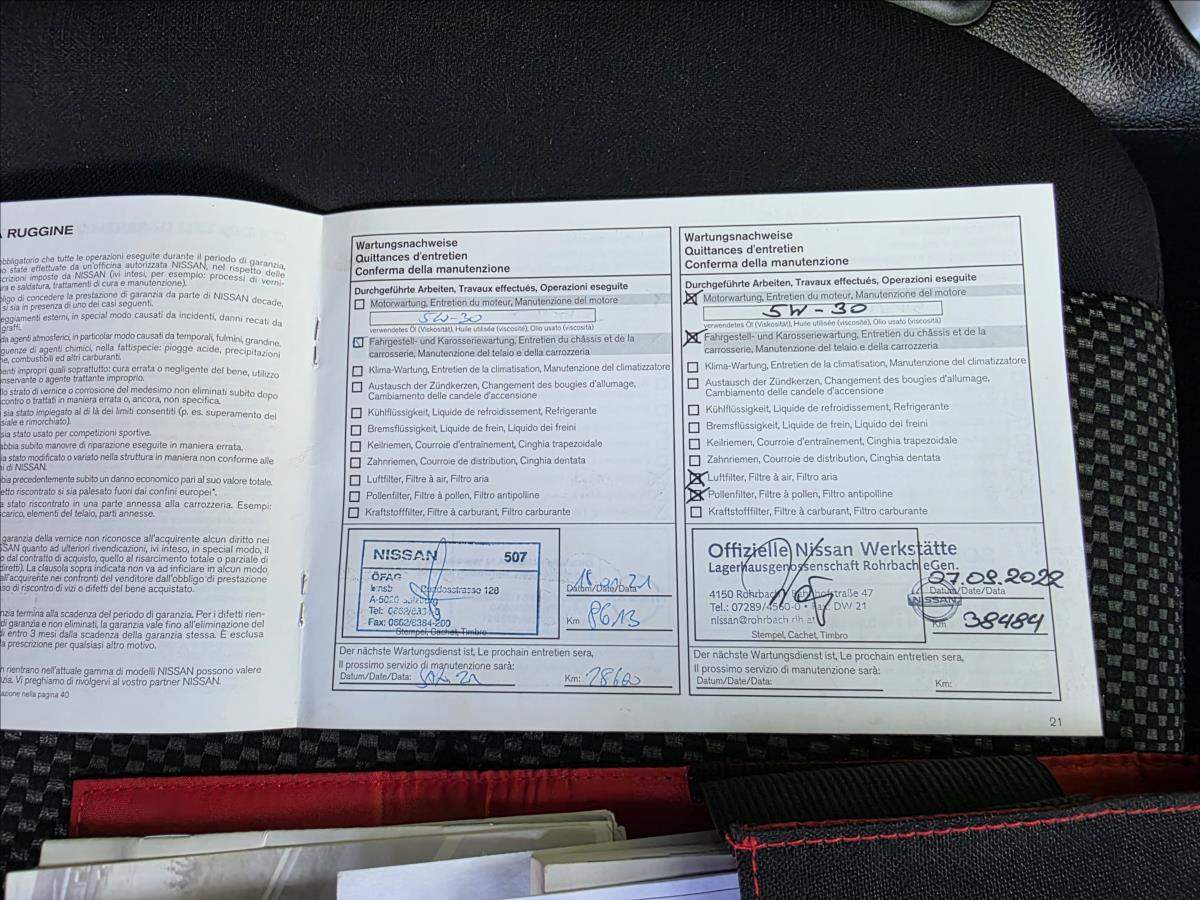 A RUGGINE
obbligatorio che tutte le operazioni eseguite durante il periodo di garanzia,
o state effettuate da un'officina autorizzata NISSAN, nel rispetto delle
crizioni imposte da NISSAN (ivi intesi, per esempio: processi di verni-
ra e saldatura, trattamenti di cura e manutenzione).
bligo di concedere la prestazione di garanzia da parte di NISSAN decade,
si sia in presenza di uno dei casi seguenti.
eggiamenti esterni, in special modo causati da incidenti, danni recati da
graffi.
da agenti atmosferici, in particolar modo causati da temporali, fulmini, grandine.
guenze di agenti chimici, nella fattispecie: piogge acide, precipitazioni
he, combustibili ed altri carburanti.
enti impropri quali soprattutto: cura errata o negligente del bene, utilizzo
onservante o agente trattante improprio.
llo strato di vernice o corrosione del medesimo non eliminati subito dopo
contro o trattati in maniera errata o, ancora, non specifica.
sia stato impiegato al di là dei limiti consentiti (p. es. superamento del
siale e rimorchiato).
sia stato usato per competizioni sportive.
abbia subito manovre di riparazione eseguite in maniera errata.
ia stato modificato o variato nella struttura in maniera non conforme alle
ni di NISSAN.
bia precedentemente subito un danno economico pari al suo valore totale.
etto riscontrato si sia palesato fuori dai confini europei*.
a stato riscontrato in una parte annessa alla carrozzeria. Esempi:
carico, elementi del telaio, parti annesse.
garanzia della vernice non riconosce all'acquirente alcun diritto nei
SSAN quanto ad ulteriori rivendicazioni, ivi inteso, in special modo, il
o dal contratto di acquisto, quello al risarcimento totale o parziale di
diretti). La clausola sopra indicata non va ad inficiare in alcun modo
all'acquirente nei confronti del venditore dall'obbligo di prestazione
so di riscontro di vizi o difetti del bene acquistato.
nzia termina alla scadenza del periodo di garanzia. Per i difetti rien-
di garanzia e non eliminati, la garanzia vale fino all'eliminazione del
di entro 3 mesi dalla scadenza della garanzia stessa. È esclusa
a prescrizione per qualsiasi altro motivo.
n rientrano nell'attuale gamma di modelli NISSAN possono valere
zia. Vi preghiamo di rivolgervi al vostro partner NISSAN.
azione nella pagina 40
Wartungsnachweise
Quittances d'entretien
Conferma della manutenzione
Durchgeführte Arbeiten, Travaux effectués, Operazioni eseguite
Motorwartung, Entretien du moteur, Manutenzione del motore
5W-30
verwendetes Öl (Viskosität), Huile utilisée (viscosité), Olio usato (viscosità)
Fahrgestell- und Karosseriewartung, Entretien du châssis et de la
carrosserie, Manutenzione del telaio e della carrozzeria
Klima-Wartung, Entretien de la climatisation, Manutenzione del climatizzatore
Austausch der Zündkerzen, Changement des bougies d'allumage,
Cambiamento delle candele d'accensione
Kühlflüssigkeit, Liquide de refroidissement, Refrigerante
Bremsflüssigkeit, Liquide de frein, Liquido dei freini
Keilriemen, Courroie d'entraînement, Cinghia trapezoidale
Zahnriemen, Courroie de distribution, Cinghia dentata
Luftfilter, Filtre à air, Filtro aria
Pollenfilter, Filtre à pollen, Filtro antipolline
Kraftstofffilter, Filtre à carburant, Filtro carburante
NISSAN 507
ÖFAG
128
Tel:
Fax: 0662/8384-200
Stempel, Cachet, Timbro
Datum/Date/Data:
Km 8613
Der nächste Wartungsdienst ist, Le prochain entretien sera,
Il prossimo servizio di manutenzione sarà:
Datum/Date/Data: 21 Km: 28600
Wartungsnachweise
Quittances d'entretien
Conferma della manutenzione
Durchgeführte Arbeiten, Travaux effectués, Operazioni eseguite
Motorwartung, Entretien du moteur, Manutenzione del motore
5W-30
verwendetes Öl (Viskosität), Huile utilisée (viscosité), Olio usato (viscosità)
Fahrgestell- und Karosseriewartung, Entretien du châssis et de la
carrosserie, Manutenzione del telaio e della carrozzeria
Klima-Wartung, Entretien de la climatisation, Manutenzione del climatizzatore
Austausch der Zündkerzen, Changement des bougies d'allumage,
Cambiamento delle candele d'accensione
Kühlflüssigkeit, Liquide de refroidissement, Refrigerante
Bremsflüssigkeit, Liquide de frein, Liquido dei freini
Keilriemen, Courroie d'entraînement, Cinghia trapezoidale
Zahnriemen, Courroie de distribution, Cinghia dentata
Luftfilter, Filtre à air, Filtro aria
Pollenfilter, Filtre à pollen, Filtro antipolline
Kraftstofffilter, Filtre à carburant, Filtro carburante
Offizielle Nissan Werkstätte
Lagerhausgenossenschaft Rohrbach eGen.
4150 Rohrbach, Bahnhofstraße 47
Tel.: 07289/4560-0 • Fax DW 21
nissan@rohrbach.rlh.at
Stempel, Cachet, Timbro
07.09.2022
Datum/Date/Data
NISSAN
Km 38484
Der nächste Wartungsdienst ist, Le prochain entretien sera,
Il prossimo servizio di manutenzione sarà:
Datum/Date/Data: Km:
21